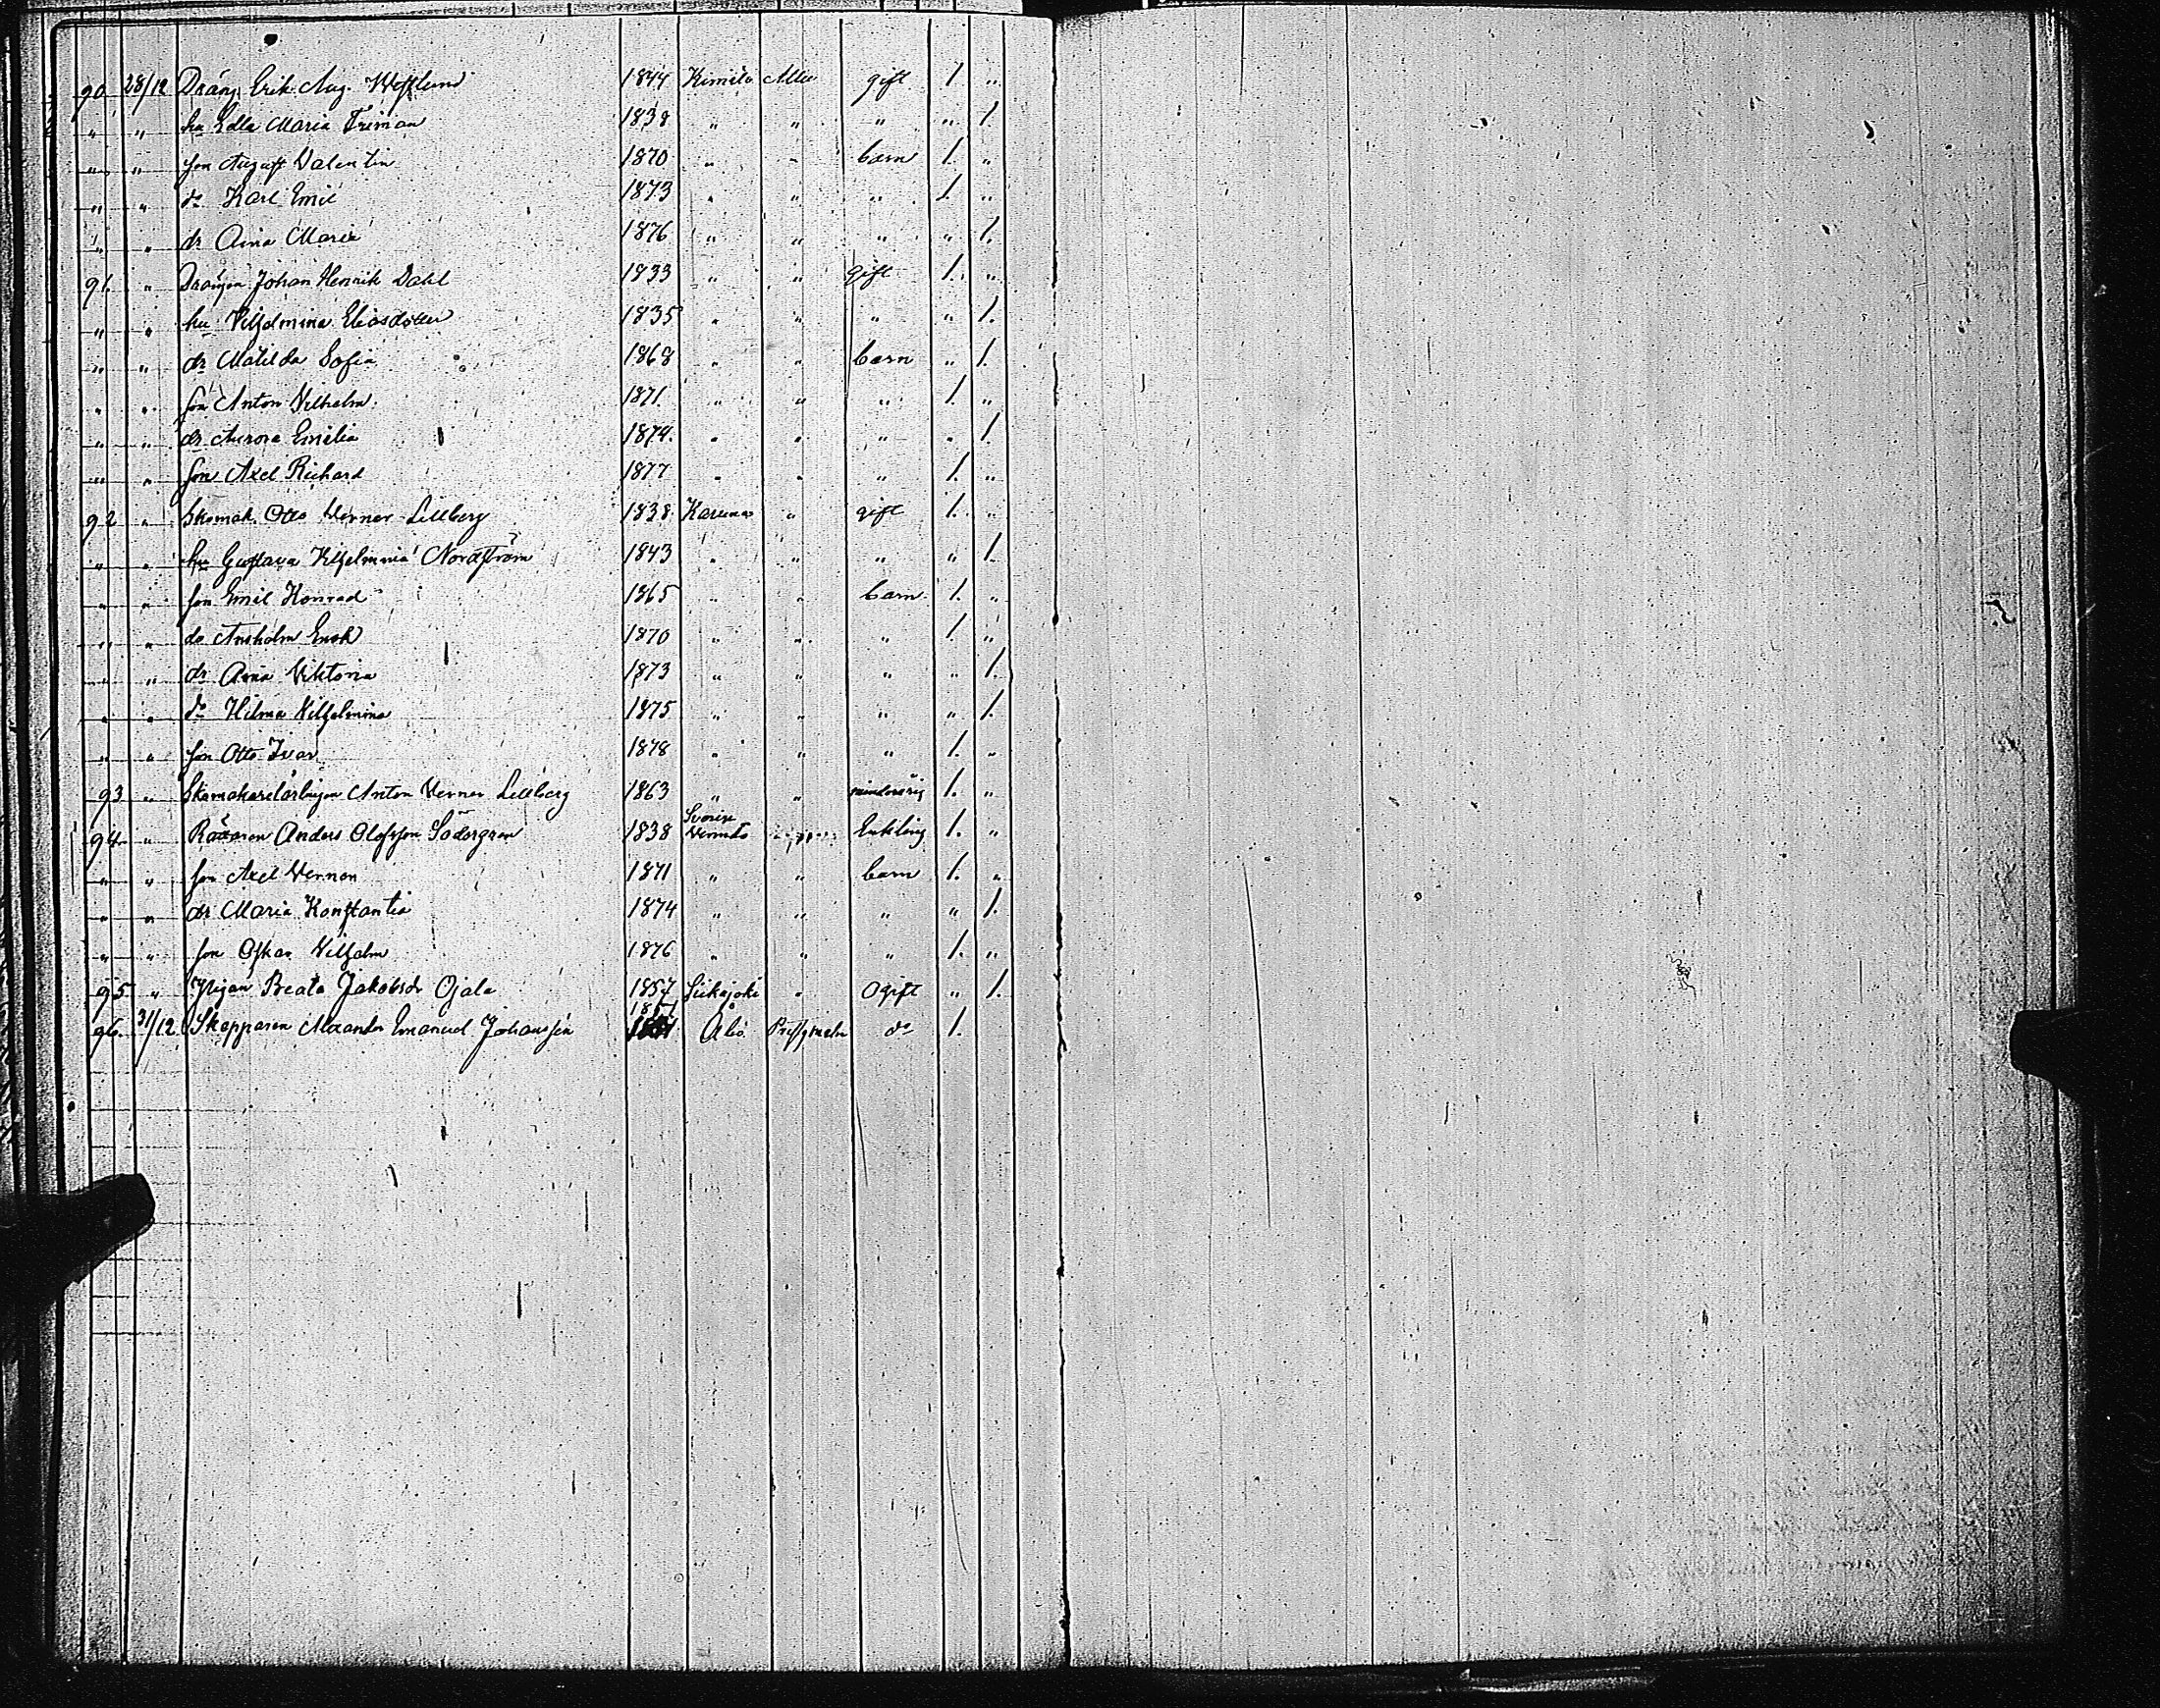 90. 28/12 Dräng Erik Aug. Westlund 1844 Kimito gift 1. "
" " hu Edla Maria Friman 1838 " " " " 1.
" " son August Valentin 1870 " " barn 1. "
" " do Karl Emil 1873 " " " 1. "
" " dr Aina Maria 1876 " " " " 1.
91. " Drängen Johan Henrik Dahl 1833 " " gift 1. "
" " hu Vilhelmina Eliasdotter 1835 " " " " 1.
" " dr Matilda Sofia 1868 " " barn " 1.
" " son Anton Vilhelm. 1871. " " " 1. "
" " dr Aurora Emilia 1874. " " " " 1.
" " son Axel Richard 1877 " " " 1. "
92 " Skomak. Otto Verner Lillberg 1838 Karuna " gift 1. "
" " hu Gustava Vilhelmina Nordström 1843 " " " " 1.
" " son Emil Konrad 1865 " " barn. 1. "
" " do Ansholm Enok 1870 " " " 1. "
" " dr Anna Viktoria 1873 " " " " 1.
" " do Hilma Vilhelmina 1875 " " " " 1.
" " son Otto Ivar 1878 " " " 1. "
93 " Skomakarelärlingen Anton Verner Lillberg 1863 " " minderårig 1. "
94. " Anders Olofsson Södergren 1838 Enkling 1. "
" " son Axel Vernon 1871 " " barn 1. "
" " dr Maria Konstantia 1874 " " " " 1.
" " son Oskar Vilhelm 1876 " " " 1. "
95 " Pigan Beata Jakobsdr Ojala 1857 Siikajoki " Ogift " 1.
96. 31/12. Skepparen Alexander Emanuel Johansson Åbo do 1.